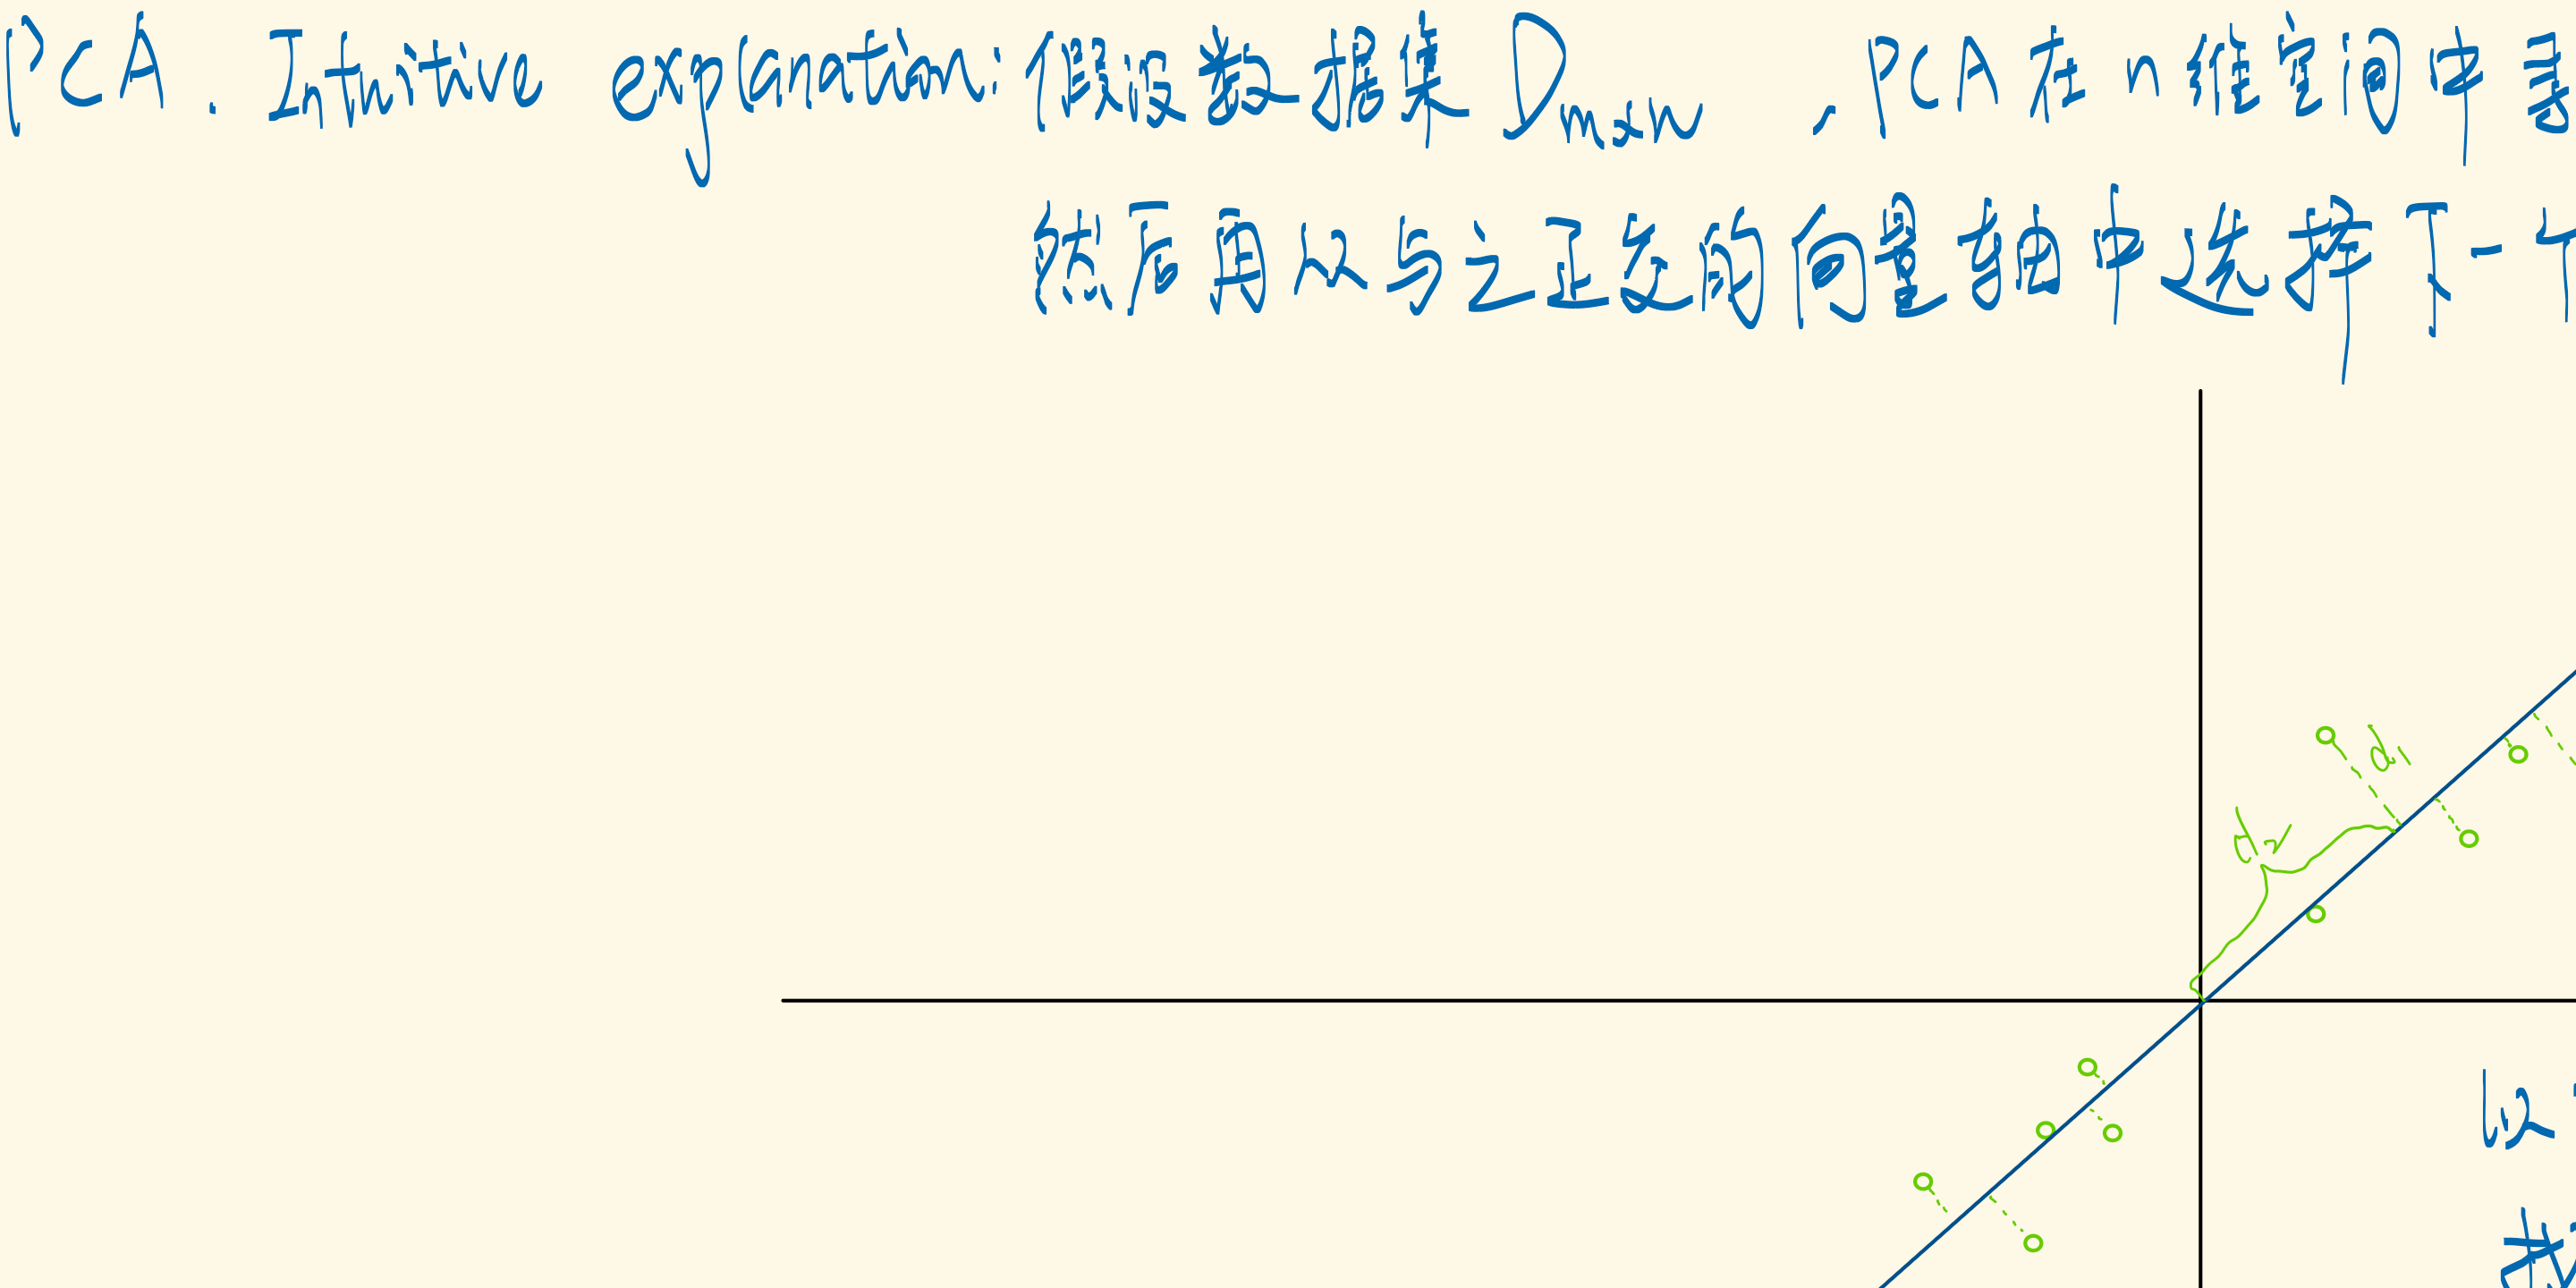 PCA. Intuitive explanation: 假设数据集 Dm×n , PCA 在 n 维空间中寻
然后再从与之正交的向量轴中选择下一个
d₁
d₂
设
找